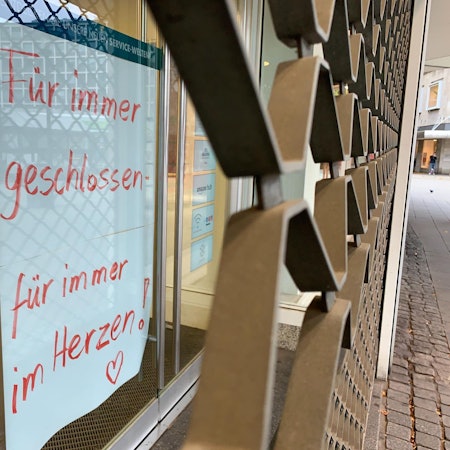 SERVICE-WELTEN
Für immer
geschlossen -
für immer
im Herzen! ♡